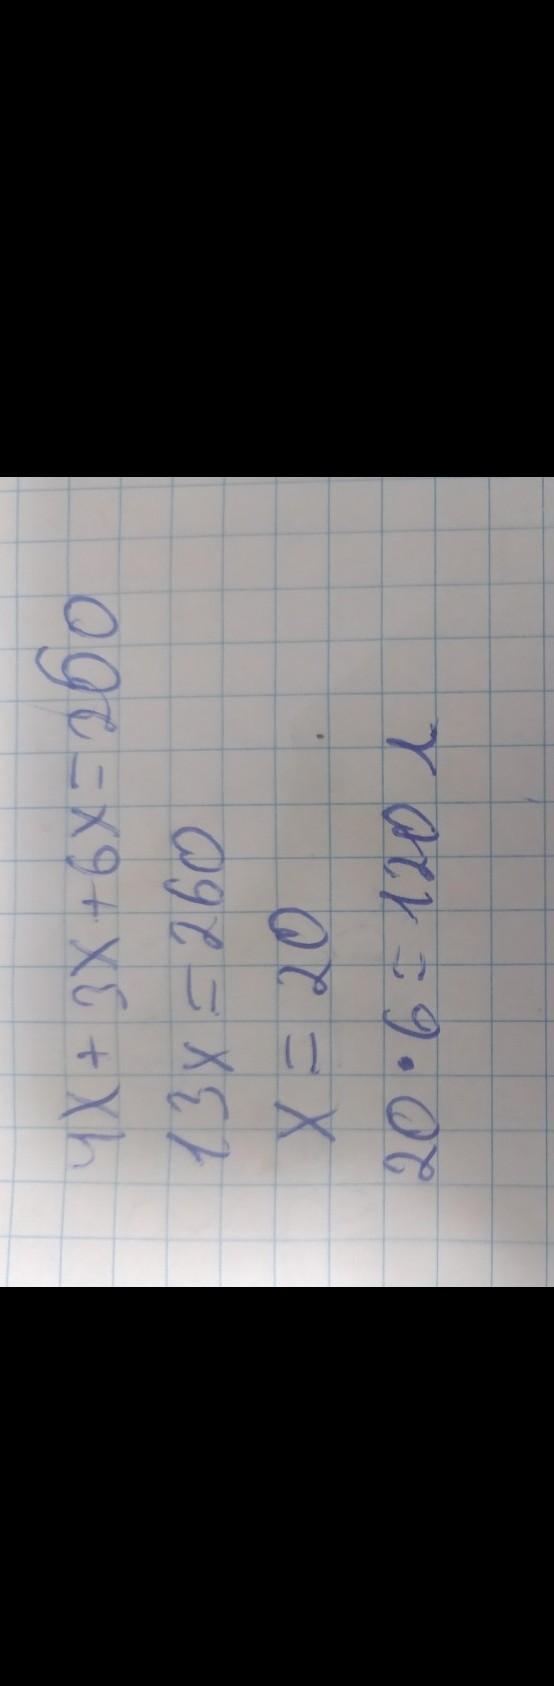 4x + 3x + 6x = 260
13x = 260
x = 20
20 · 6 = 120 л